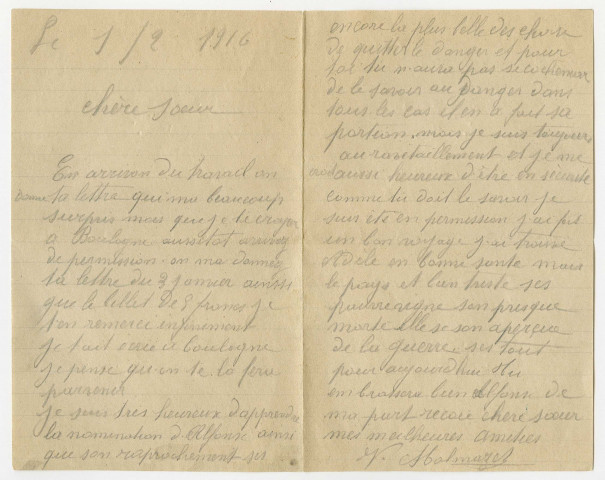 Le 1/2 1916
chère sœur
En arrivon du travail on
donne ta lettre qui ma beaucoup
surpris mais que je te croyer
a Boulogne aussitot arriver
de permission on ma donner
ta lettre du 3 janvier ainsi
que le billet De 5 francs je
ten remerce infiniment
je tait ecrie a boulogne
je pense qu on te la fera
parvenir
je suis tres heureux d'apprendre
la nomination d'Alfonse ainsi
que son raprochement ses
encore la plus belle des chose
de quitter le danger et pour
toi tu n aura pas se cochemar
de le savoir au danger dans
tous les cas il en a fait sa
portion. mais je suis toujours
au ravitaillement et je me
aussi heureux d'être en securite
comme tu doit le savoir je
suis ete en permission j ai fait
un bon voyage j ai trouve
Adèle en bonne sante mais
le pays et bien triste ses
pauvre son presque
morte elle se son apercu
de la guerre ses tout
pour aujourdhui Tu
embrassera bien Alfonse de
ma part recoie cheré sœur
mes meilheures amities